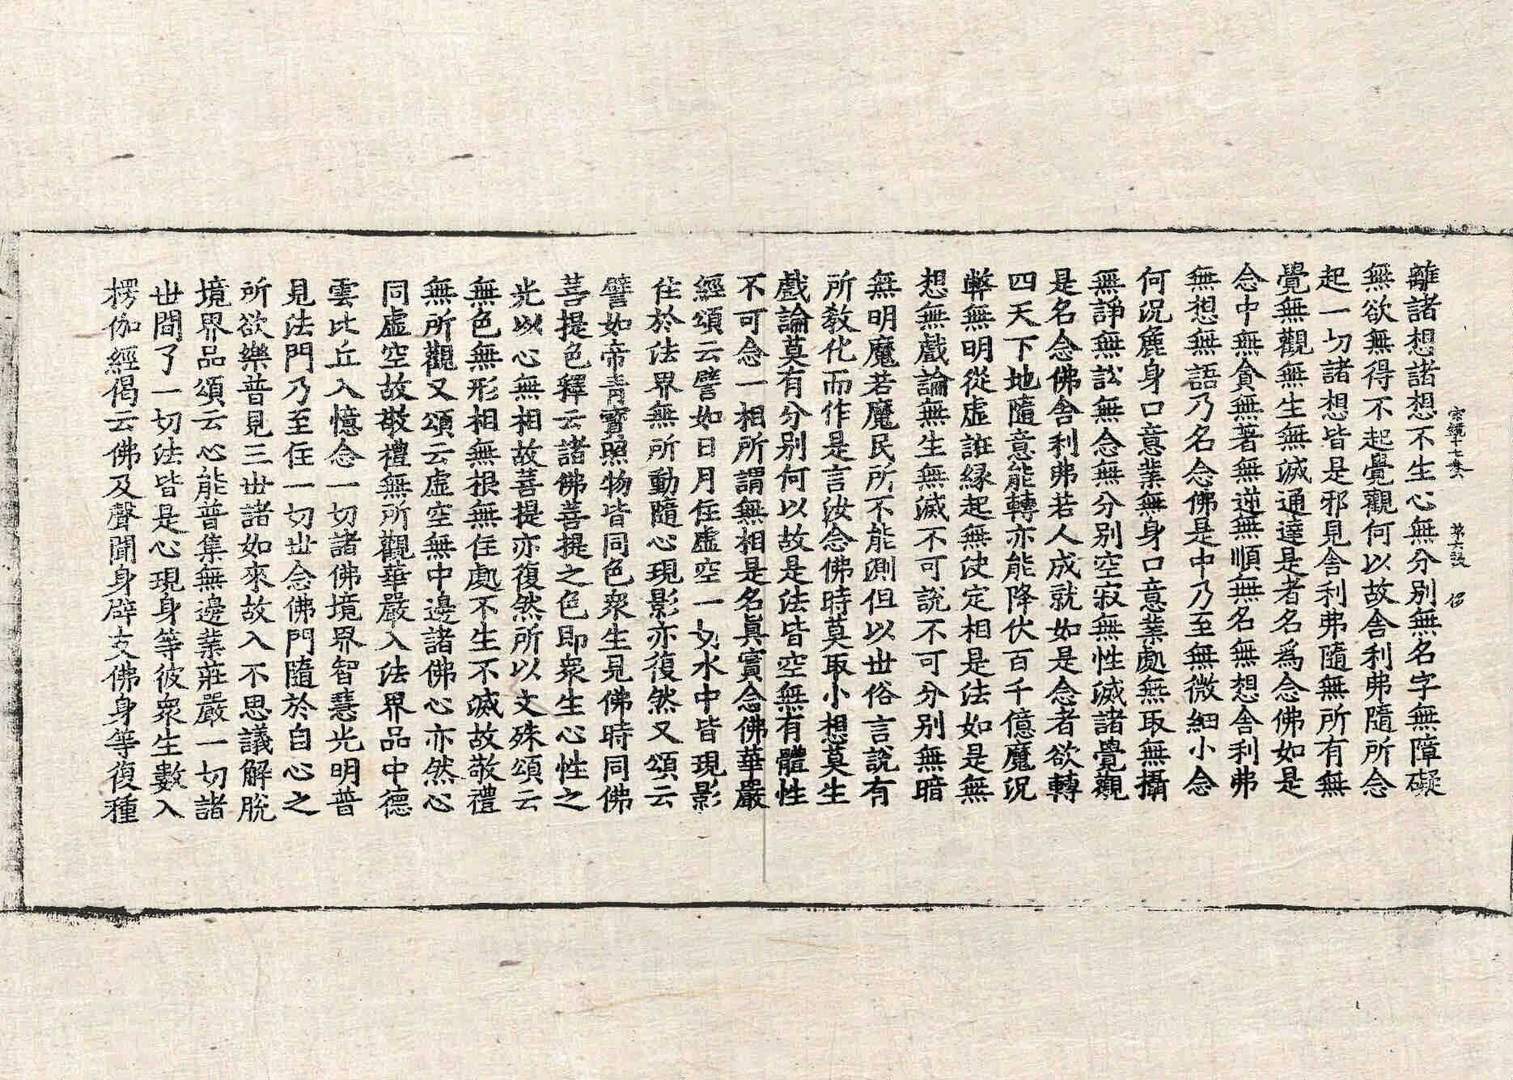 離諸想諸想不生心無分別無名字無障礙
無欲無得不起覺觀何以故舍利弗隨所念
起一切諸想皆是邪見舍利弗隨無所有無
覺無觀無生無滅通達是者名爲念佛如是
念中無貪無著無逆無順無名無想舍利弗
無想無語乃名念佛是中乃至無微細小念
何況麁身口意業無身口意業處無取無攝
無諍無訟無念無分別空寂無性滅諸覺觀
是名念佛舍利弗若人成就如是念者欲轉
四天下地隨意能轉亦能降伏百千億魔況
弊無明從虛誑緣起無決定相是法如是無
想無戲論無生無滅不可說不可分別無暗
無明魔若魔民所不能測但以世俗言說有
所教化而作是言汝念佛時莫取小想莫生
戲論莫有分別何以故是法皆空無有體性
不可念一相所謂無相是名真實念佛華嚴
經頌云譬如日月住虛空一切水中皆現影
住於法界無所動隨心現影亦復然又頌云
譬如帝青寶照物皆同色衆生見佛時同佛
菩提色釋云諸佛菩提之色即衆生心性之
光以心無相故菩提亦復然所以文殊頌云
無色無形相無根無住處不生不滅故敬禮
無所觀又頌云虛空無中邊諸佛心亦然心
同虛空故敬禮無所觀華嚴入法界品中德
雲比丘入憶念一切諸佛境界智慧光明普
見法門乃至住一切世念佛門隨於自心之
所欲樂普見三世諸如來故入不思議解脫
境界品頌云心能普集無邊業莊嚴一切諸
世間了一切法皆是心現身等彼衆生數入
楞伽經偈云佛及聲聞身辟支佛身等復種
宗鏡十七卷 第六張 侶